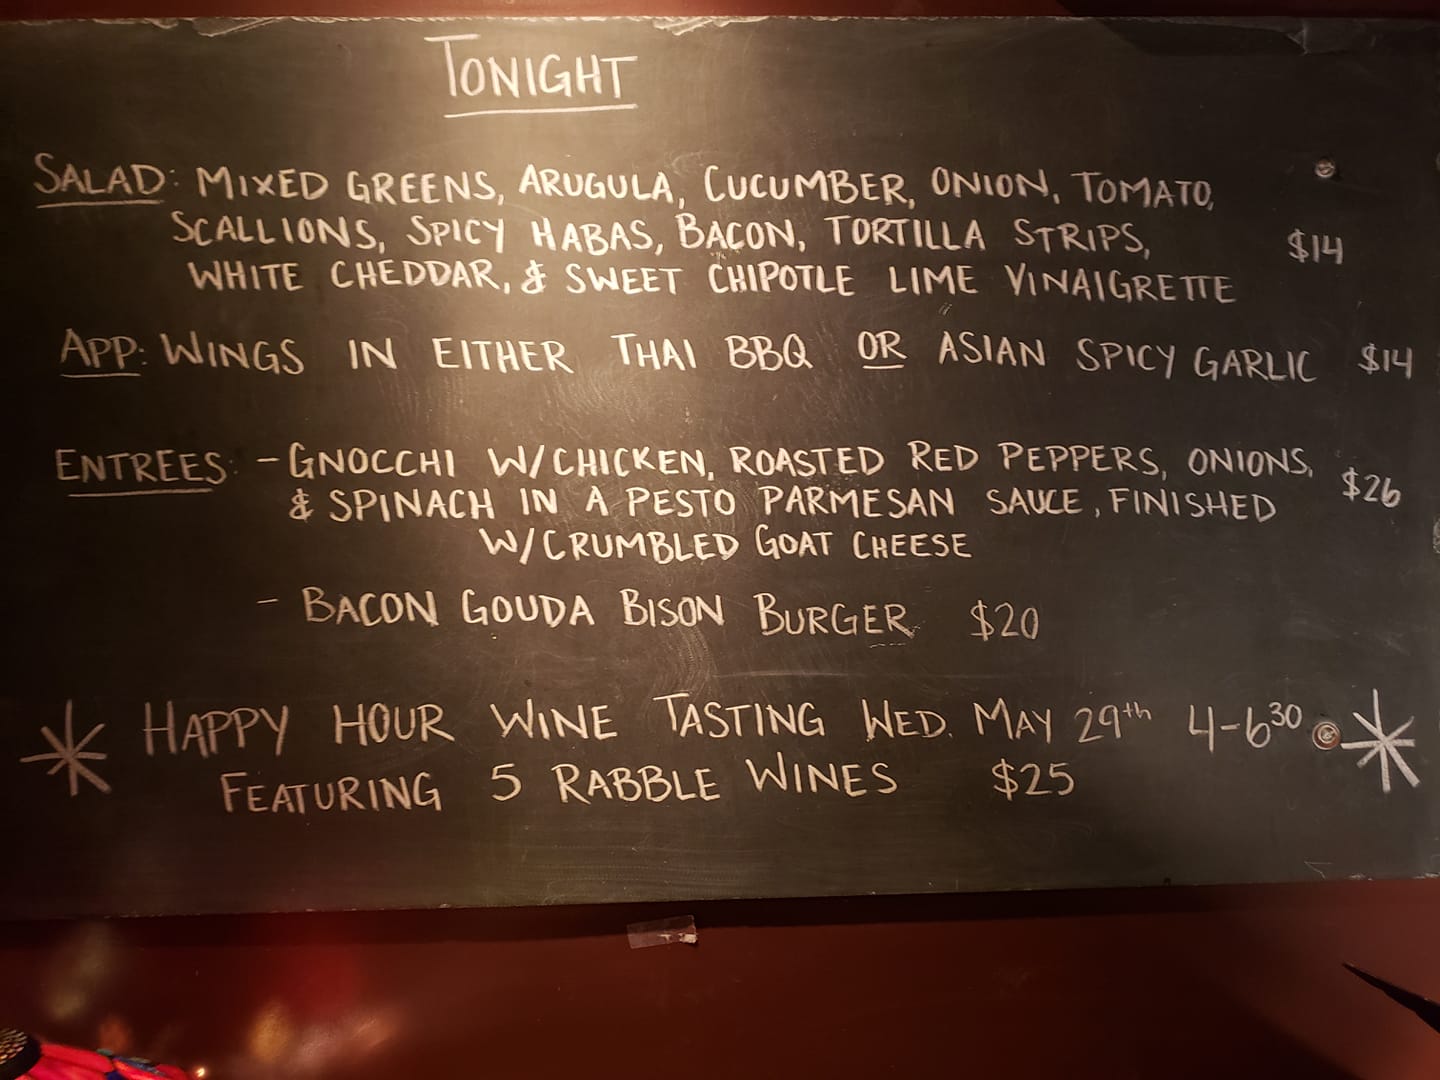 TONIGHT
SALAD: MIXED GREENS, ARUGULA, CUCUMBER, ONION, TOMATO,
SCALLIONS, SPICY HABAS, BACON, TORTILLA STRIPS, $14
WHITE CHEDDAR, & SWEET CHIPOTLE LIME VINAIGRETTE
APP: WINGS IN EITHER THAI BBQ OR ASIAN SPICY GARLIC $14
ENTREES: - GNOCCHI W/CHICKEN, ROASTED RED PEPPERS, ONIONS, $26
& SPINACH IN A PESTO PARMESAN SAUCE, FINISHED
W/CRUMBLED GOAT CHEESE
- BACON GOUDA BISON BURGER $20
HAPPY HOUR WINE TASTING WED. MAY 29th 4-6³⁰
FEATURING 5 RABBLE WINES $25